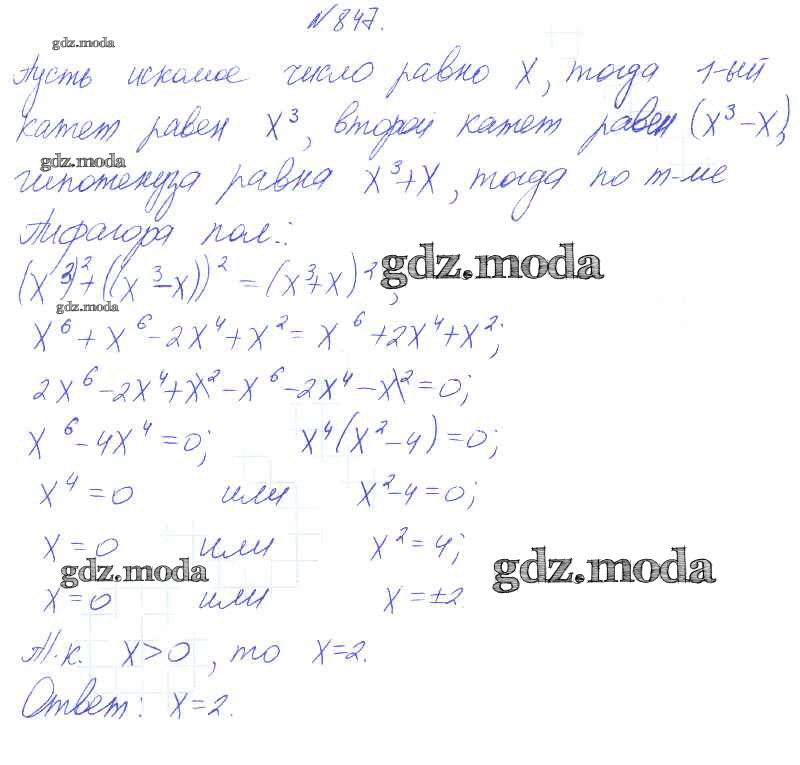 N 847.
gdz.moda
Пусть искомое число равно x, тогда 1-ый
катет равен x³, второй катет равен (x³-x),
gdz.moda
гипотенуза равна x³+x, тогда по т-ме
Пифагора пол.:
(x³)²+((x³-x))²=(x³+x)²,
gdz.moda
gdz.moda
x⁶+x⁶-2x⁴+x²=x⁶+2x⁴+x²;
2x⁶-2x⁴+x²-x⁶-2x⁴-x²=0;
x⁶-4x⁴=0; x⁴(x²-4)=0;
x⁴=0 или x²-4=0;
x=0 или x²=4;
gdz.moda gdz.moda
x=0 или x=±2
Т.к. x>0, то x=2.
Ответ: x=2.